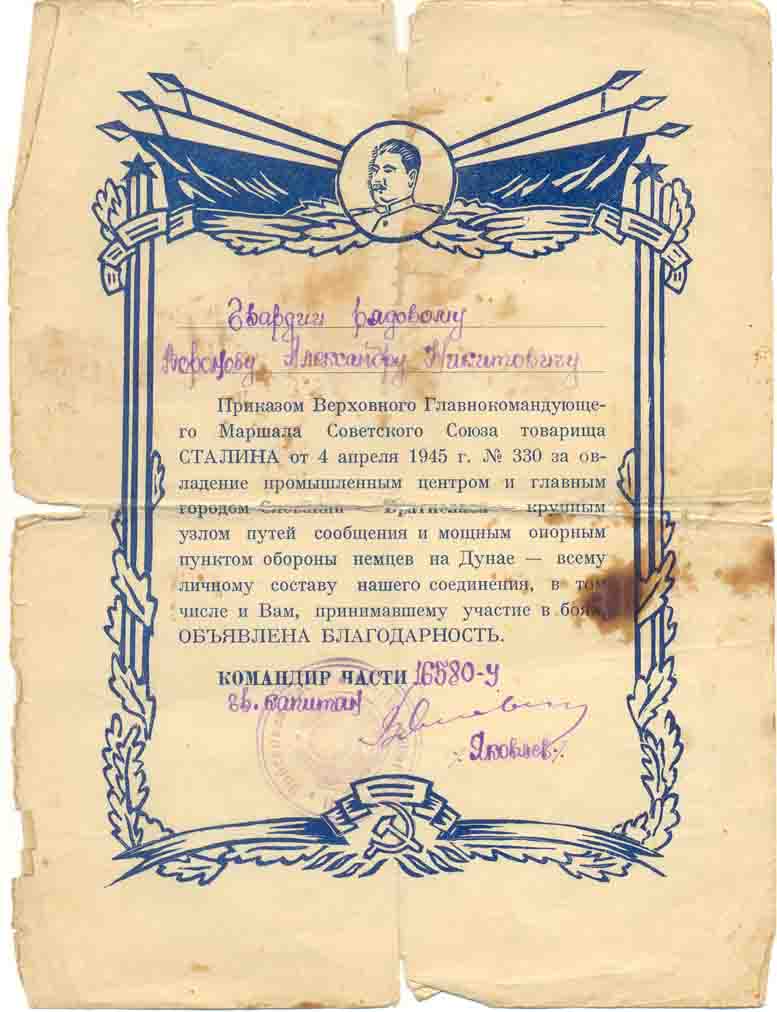 Гвардии рядовому
Александру Никитовичу
Приказом Верховного Главнокомандующе-
го Маршала Советского Союза товарища
СТАЛИНА от 4 апреля 1945 г. № 330 за ов-
ладение промышленным центром и главным
городом Словакии Братислава крупным
узлом путей сообщения и мощным опорным
пунктом обороны немцев на Дунае — всему
личному составу нашего соединения, в том
числе и Вам, принимавшему участие в боях,
ОБЪЯВЛЕНА БЛАГОДАРНОСТЬ.
КОМАНДИР ЧАСТИ 16580-У
гв. капитан
/Яковлев/